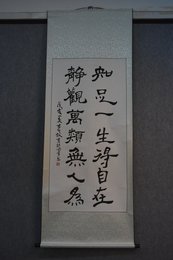 知足一生得自在
静觀萬類無人為